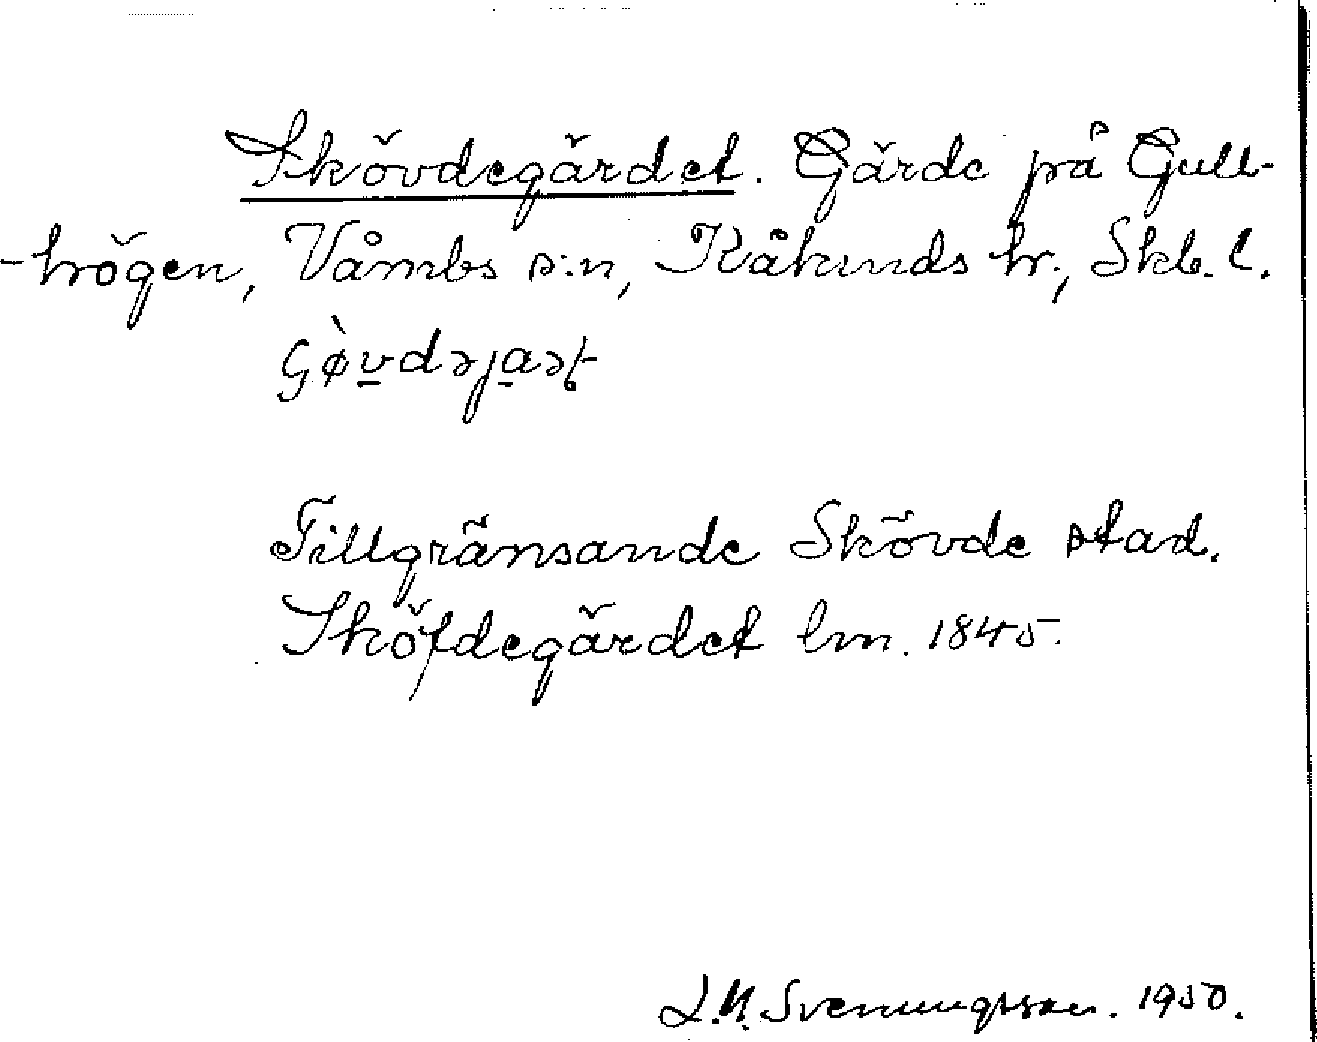 Skövdegärdet. Gärde på Gull-
-högen, Våmbs s:n, Kåkinds hr., Skb. l.
Tillgränsande Skövde stad.
Sköfdegärdet lm. 1845.
Svenungsson. 1950.